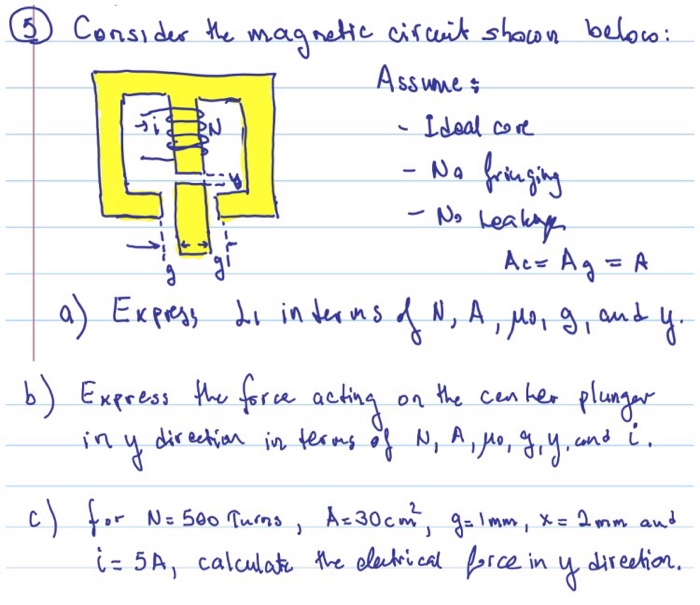 5 Consider the magnetic circuit shown below:
Assume:
- Ideal core
- No fringing
- No Leakage
Ac = Ag = A
i N
y
g g
a) Express L1 in terms of N, A, μ0, g, and y.
b) Express the force acting on the center plunger
in y direction in terms of N, A, μ0, g, y, and i.
c) for N = 500 Turns, A = 30 cm², g = 1mm, x = 2 mm and
i = 5A, calculate the electrical force in y direction.